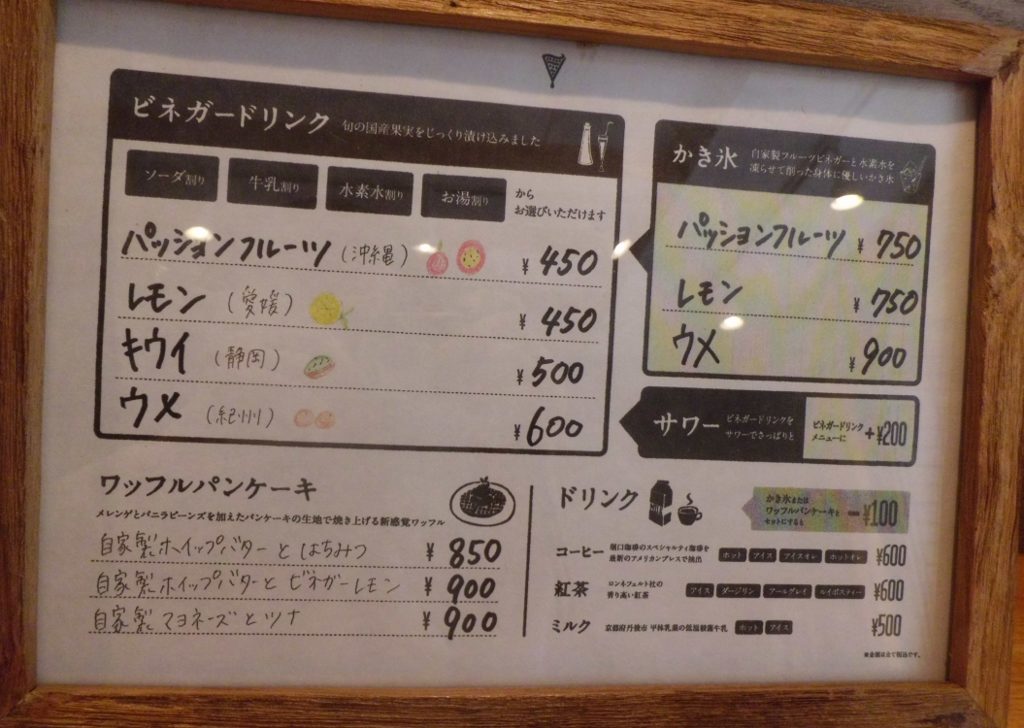 ビネガードリンク 旬の国産果実をじっくり漬け込みました
ソーダ割り 牛乳割り 水素水割り お湯割り から
お選びいただけます
パッションフルーツ (沖縄) ¥450
レモン (愛媛) ¥450
キウイ (静岡) ¥500
ウメ (紀州) ¥600
かき氷 自家製フルーツビネガーと水素水を
凍らせて削った身体に優しいかき氷
パッションフルーツ ¥750
レモン ¥750
ウメ ¥900
サワー ビネガードリンクを
サワーでさっぱりと
ビネガードリンク
メニューに +¥200
ワッフルパンケーキ
メレンゲとバニラビーンズを加えたパンケーキの生地で焼き上げる新感覚ワッフル
自家製ホイップバターとはちみつ ¥850
自家製ホイップバターとビネガーレモン ¥900
自家製マヨネーズとツナ ¥900
ドリンク
かき氷または
ワッフルパンケーキと
セットにすると -¥100
コーヒー 堀口珈琲のスペシャルティ珈琲を
最新のアメリカンプレスで抽出
ホット アイス アイスオレ ホットオレ ¥600
紅茶 ロンネフェルト社の
香り高い紅茶
アイス ダージリン アールグレイ ルイボスティー ¥600
ミルク 京都府丹後市 平林乳業の低温殺菌牛乳 ホット アイス ¥500
※金額は全て税込です。